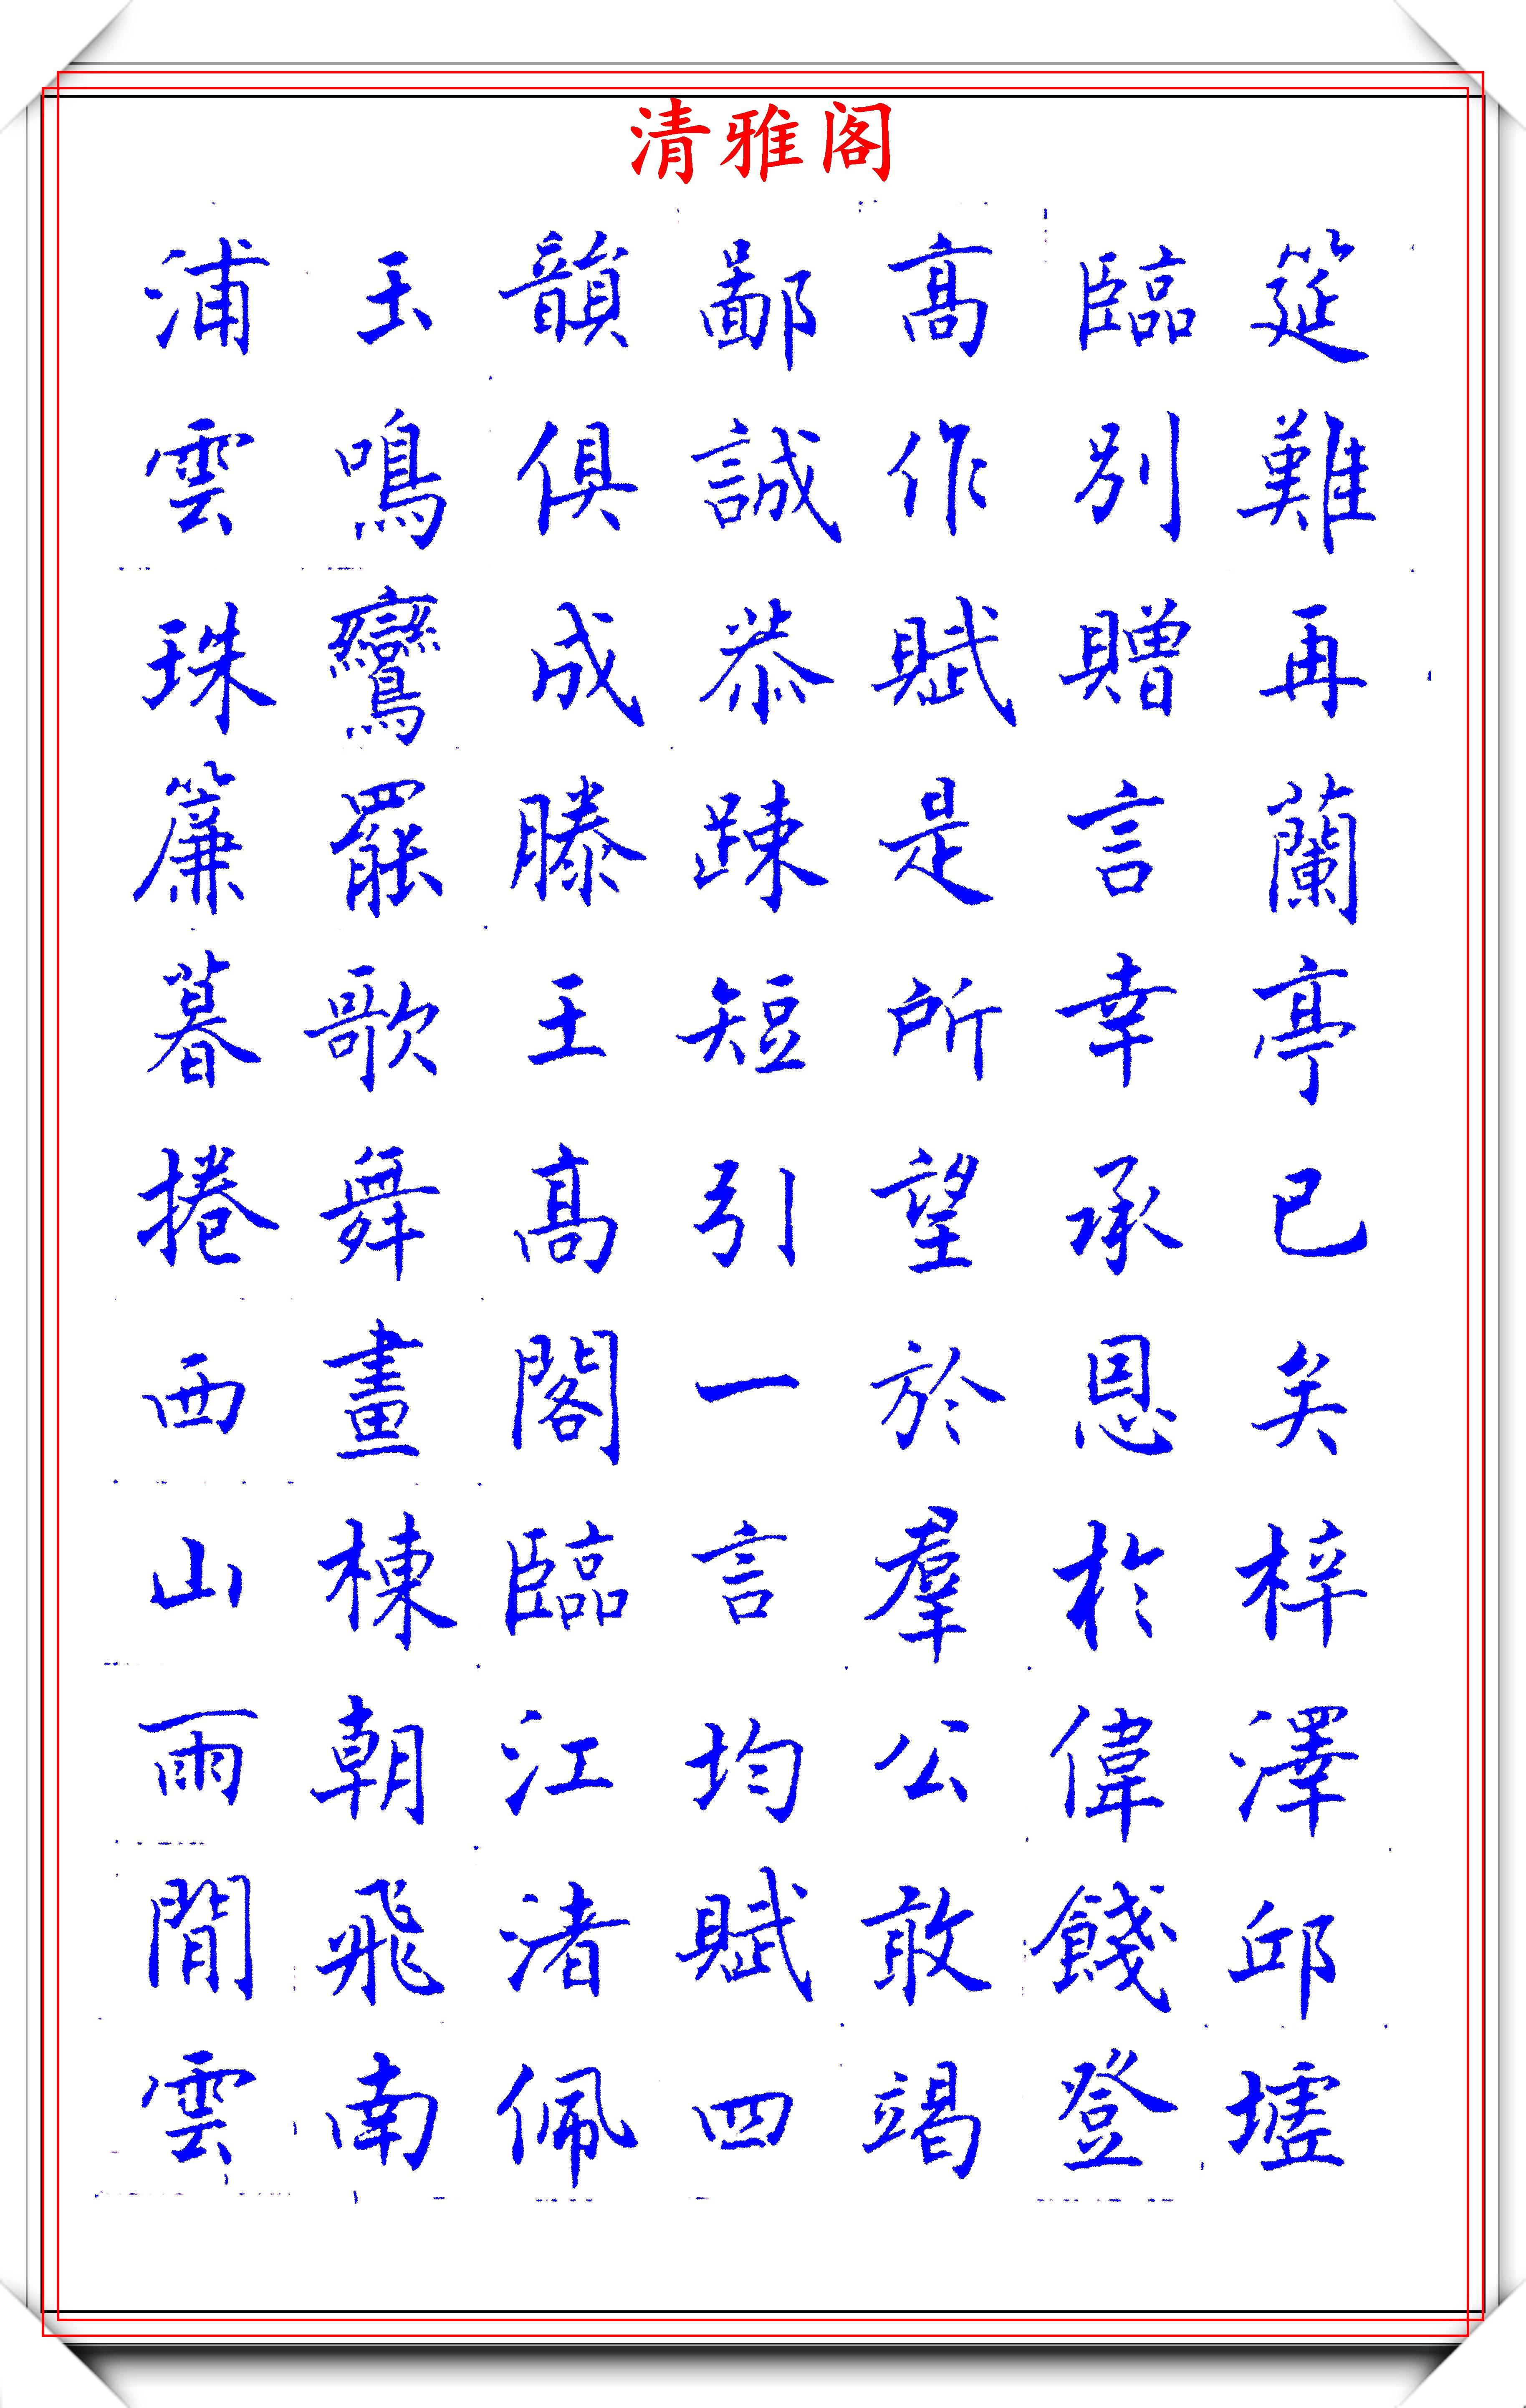 清雅阁
筵難再蘭亭已矣梓澤邱墟
臨別贈言幸承恩於偉餞登
高作賦是所望於羣公敢竭
鄙誠恭疎短引一言均賦四
韻俱成滕王高閣臨江渚佩
玉鳴鸞罷歌舞畫棟朝飛南
浦雲珠簾暮捲西山雨閒雲